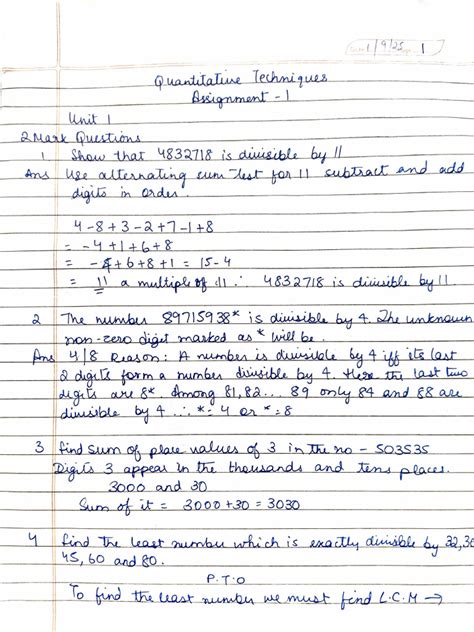 1/9/25 1
Quantitative Techniques
Assignment - 1
Unit 1
2 Mark Questions
1 Show that 4832718 is divisible by 11
Ans Use alternating sum-test for 11 subtract and add
digits in order.
4-8+3-2+7-1+8
= -4+1+6+8
= -4+6+8+1 = 15-4
= 11 a multiple of 11 ∴ 4832718 is divisible by 11.
2 The number 89715938* is divisible by 4. The unknown
non-zero digit marked as * will be.
Ans 4/8 Reason: A number is divisible by 4 iff its last
2 digits form a number divisible by 4. Here the last two
digits are 8*. Among 81,82... 89 only 84 and 88 are
divisible by 4 ∴ *=4 or *=8
3 find sum of place values of 3 in the no - 503535
Digits 3 appear in the thousands and tens places.
3000 and 30
Sum of it = 3000+30 = 3030
4 find the least number which is exactly divisible by 32,36
45, 60 and 80.
P.T.O
To find the least number we must find L.C.M →